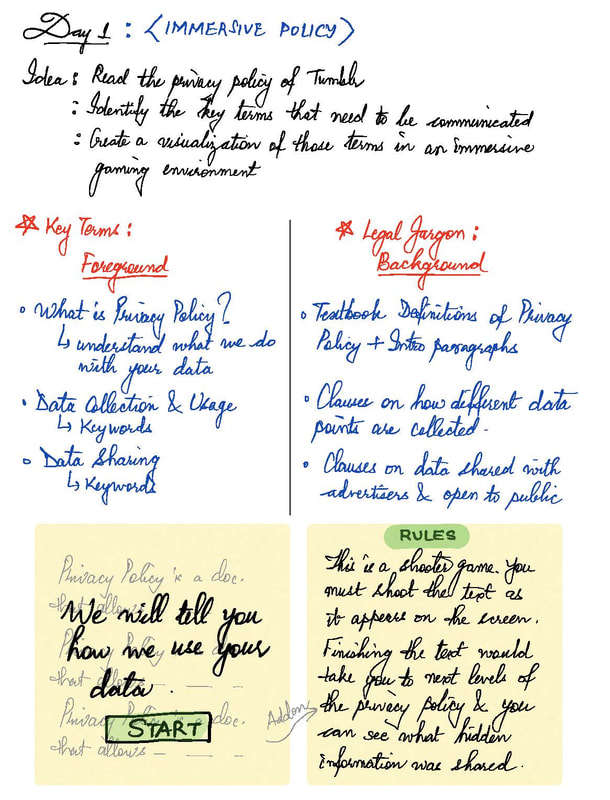 Day 1 : < IMMERSIVE POLICY >
Idea : Read the privacy policy of Tumblr
: Identify the key terms that need to be communicated
: Create a visualization of those terms in an immersive
gaming environment
☆ Key Terms :
Foreground
• What is Privacy Policy?
↳ understand what we do
with your data
• Data Collection & Usage
↳ Keywords
• Data Sharing
↳ Keywords
* Legal Jargon :
Background
• Textbook Definitions of Privacy
Policy + Intro paragraphs
• Clauses on how different data
points are collected.
• Clauses on data shared with
advertisers & open to public
Privacy Policy is a doc.
that allows
We will tell you
how we use your
data.
that allows — — —
Privacy Policy is a doc.
that allows — — —
START
Addons
RULES
This is a shooter game. You
must shoot the text as
it appears on the screen.
Finishing the text would
take you to next levels of
the privacy policy & you
can see what hidden
information was shared.